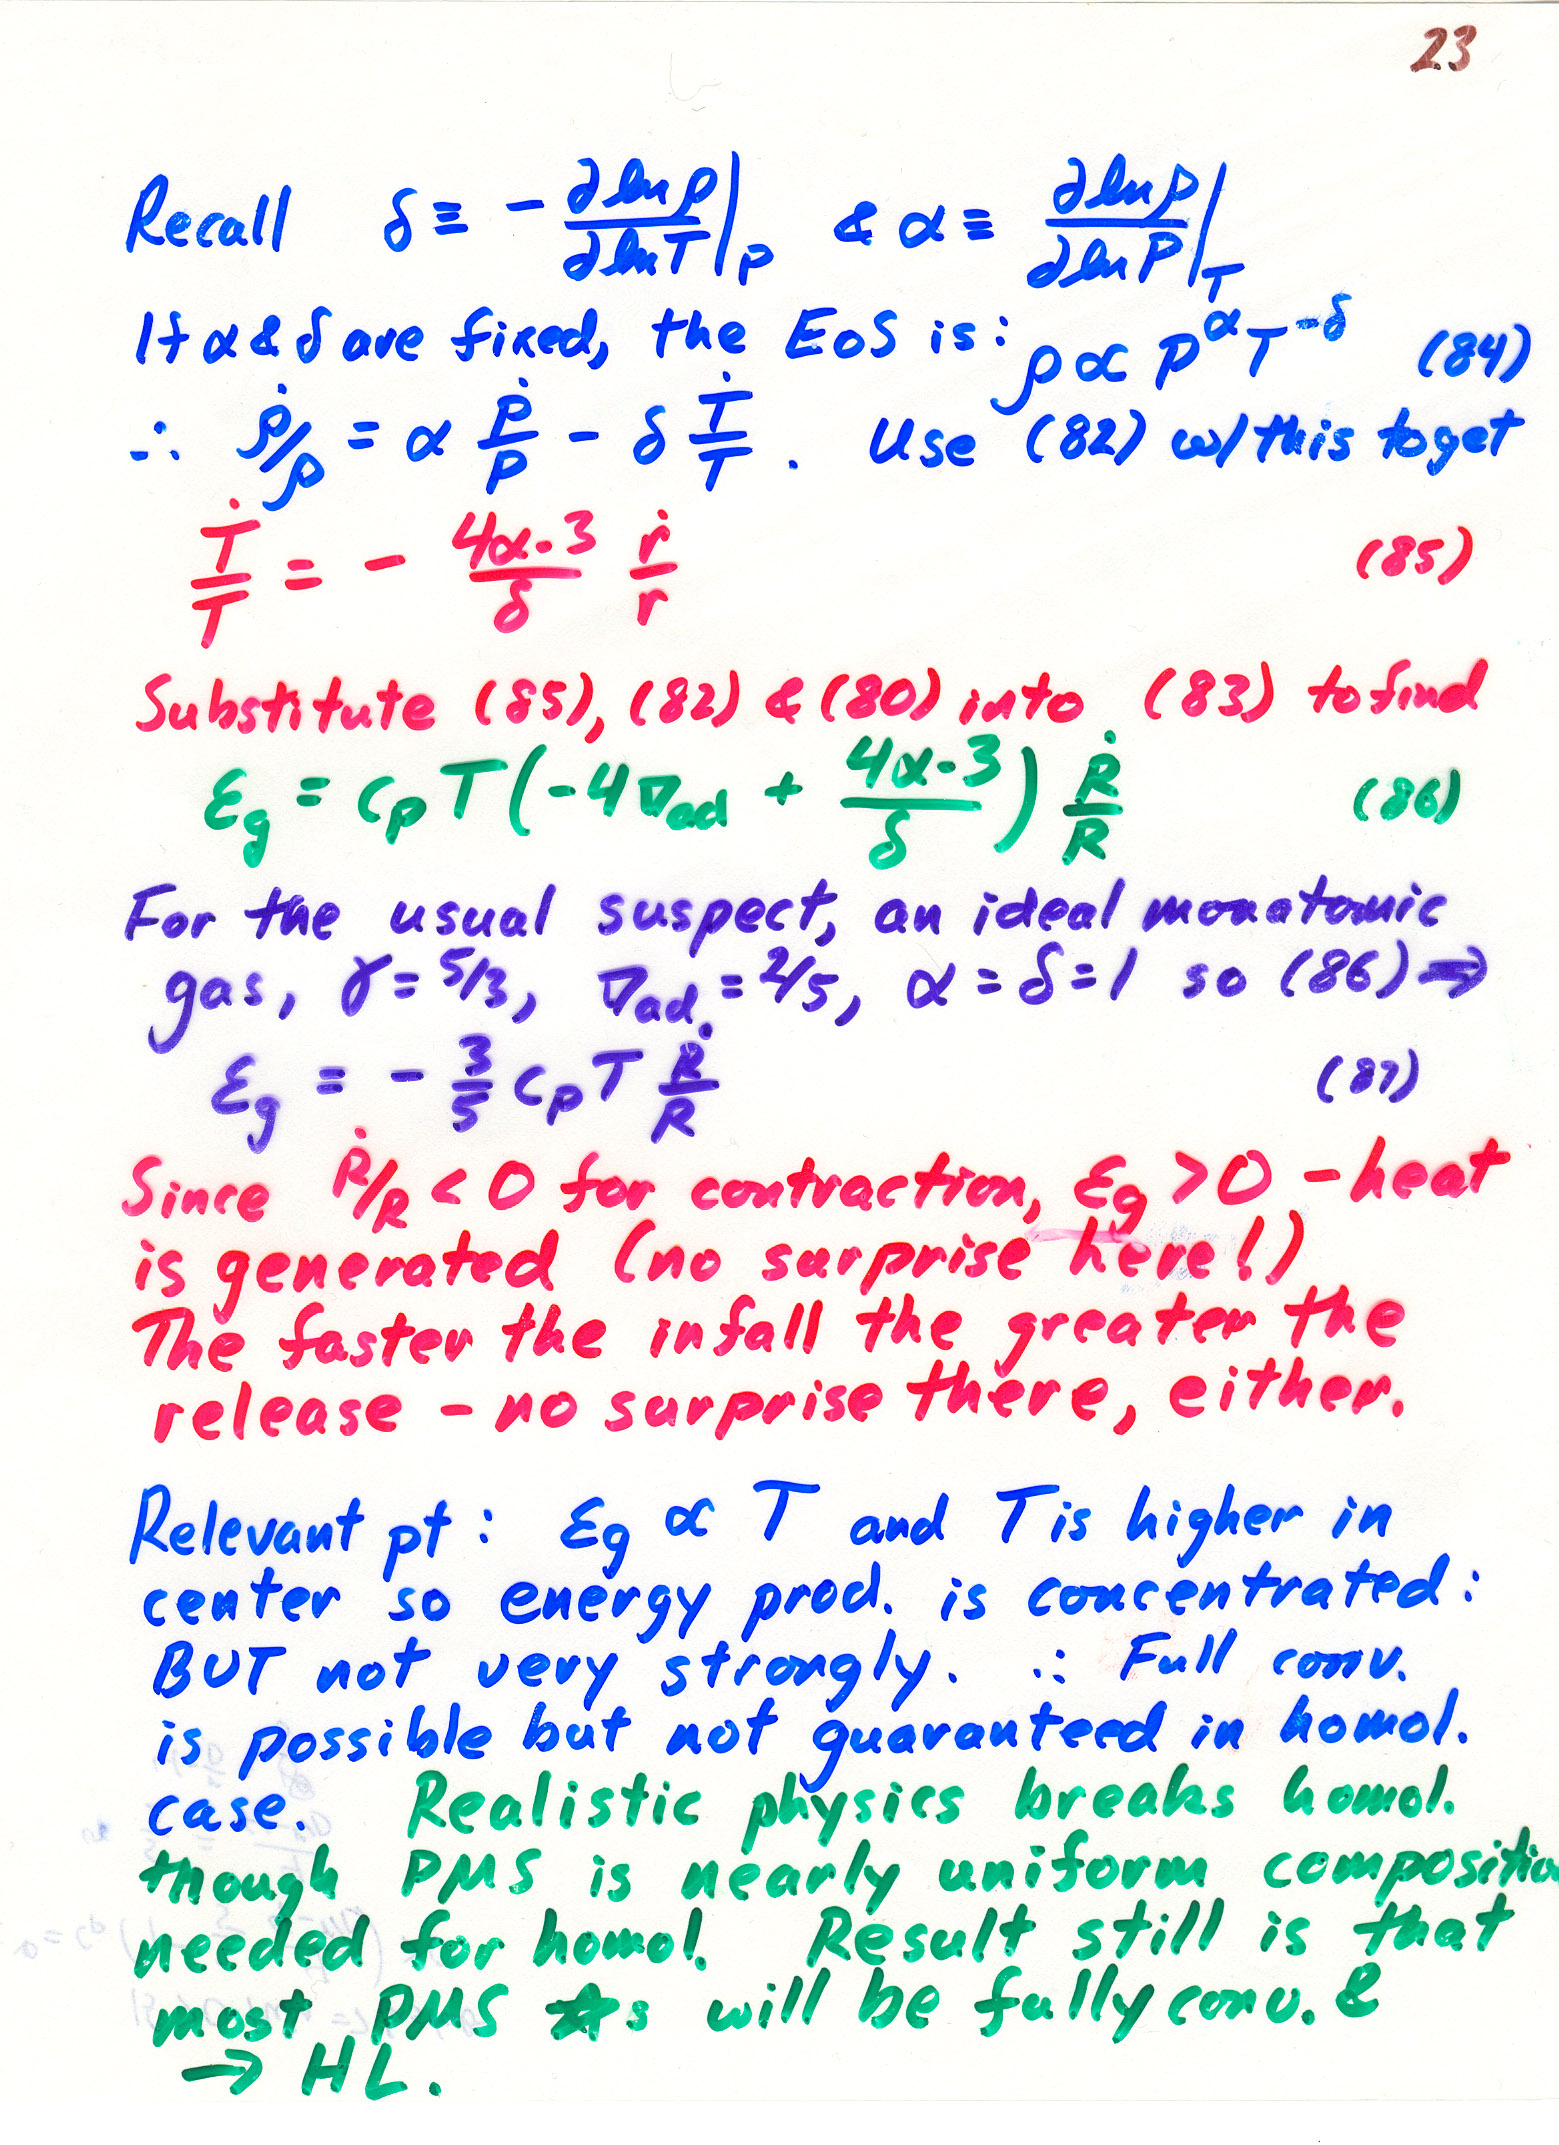 23
Recall δ ≡ - ∂lnρ/∂lnT|_P & α ≡ ∂lnρ/∂lnP|_T
If α & δ are fixed, the EoS is: ρ ∝ P^α T^-δ (84)
∴ ρ̇/ρ = α Ṗ/P - δ Ṫ/T. Use (82) w/this to get
Ṫ/T = - (4α-3)/δ ṙ/r (85)
Substitute (85), (82) & (80) into (83) to find
ε_g = c_P T(-4∇_ad + (4α-3)/δ) Ṙ/R (86)
For the usual suspect, an ideal monatomic
gas, γ = 5/3, ∇_ad = 2/5, α = δ = 1 so (86) ⇒
ε_g = - 3/5 c_P T Ṙ/R (87)
Since Ṙ/R < 0 for contraction, ε_g > 0 - heat
is generated (no surprise here!)
The faster the infall the greater the
release - no surprise there, either.
Relevant pt: ε_g ∝ T and T is higher in
center so energy prod. is concentrated:
BUT not very strongly. ∴ Full conv.
is possible but not guaranteed in homol.
case. Realistic physics breaks homol.
though PMS is nearly uniform composition
needed for homol. Result still is that
most PMS ☆s will be fully conv. &
→ HL.